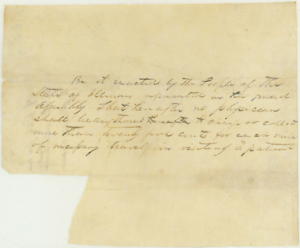 Be it enacted by the People of the
State of Illinois represented in the
Assembly that hereafter no physician
shall be to charge or collect
more than twenty five cents for each mile
of necessary travel in visiting a patient